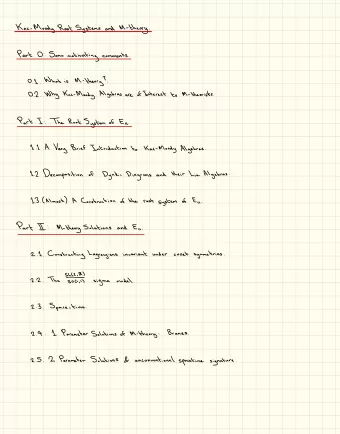 Kac-Moody Root Systems and M-theory.
Part 0: Some motivating comments
0.1. What is M-theory?
0.2. Why Kac-Moody Algebras are of Interest to M-theorists
Part I: The Root System of E₁₁
1.1 A Very Brief Introduction to Kac-Moody Algebras.
1.2 Decomposition of Dynkin Diagrams and their Lie Algebras.
1.3. (Almost) A Construction of the root system of E₁₁.
Part II: M-theory Solutions and E₁₁
2.1. Constructing Lagrangians invariant under coset symmetries.
2.2. The SL(2,R)/SO(1,1) sigma model.
2.3. Space-time.
2.4. 1 Parameter Solutions of M-theory: Branes.
2.5. 2 Parameter Solutions & unconventional spacetime signature.